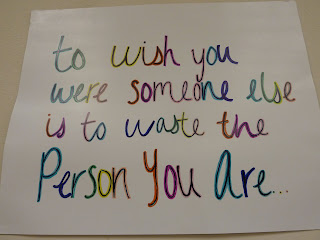 to wish you
were someone else
is to waste the
Person You Are...